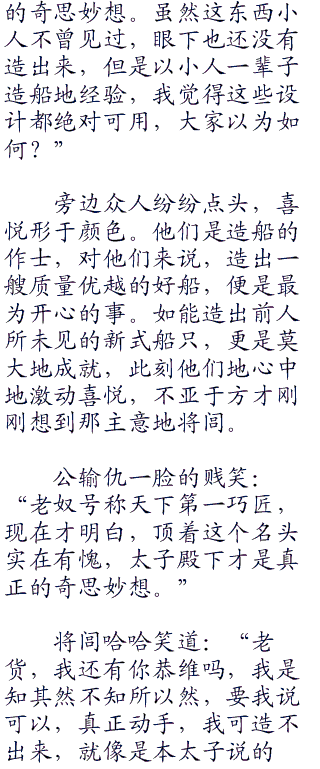 的奇思妙想。虽然这东西小
人不曾见过，眼下也还没有
造出来，但是以小人一辈子
造船地经验，我觉得这些设
计都绝对可用，大家以为如
何？”
旁边众人纷纷点头，喜
悦形于颜色。他们是造船的
作士，对他们来说，造出一
艘质量优越的好船，便是最
为开心的事。如能造出前人
所未见的新式船只，更是莫
大地成就，此刻他们地心中
地激动喜悦，不亚于方才刚
刚想到那主意地将闾。
公输仇一脸的贱笑：
“老奴号称天下第一巧匠，
现在才明白，顶着这个名头
实在有愧，太子殿下才是真
正的奇思妙想。”
将闾哈哈笑道：“老
货，我还有你恭维吗，我是
知其然不知所以然，要我说
可以，真正动手，我可造不
出来，就像是本太子说的